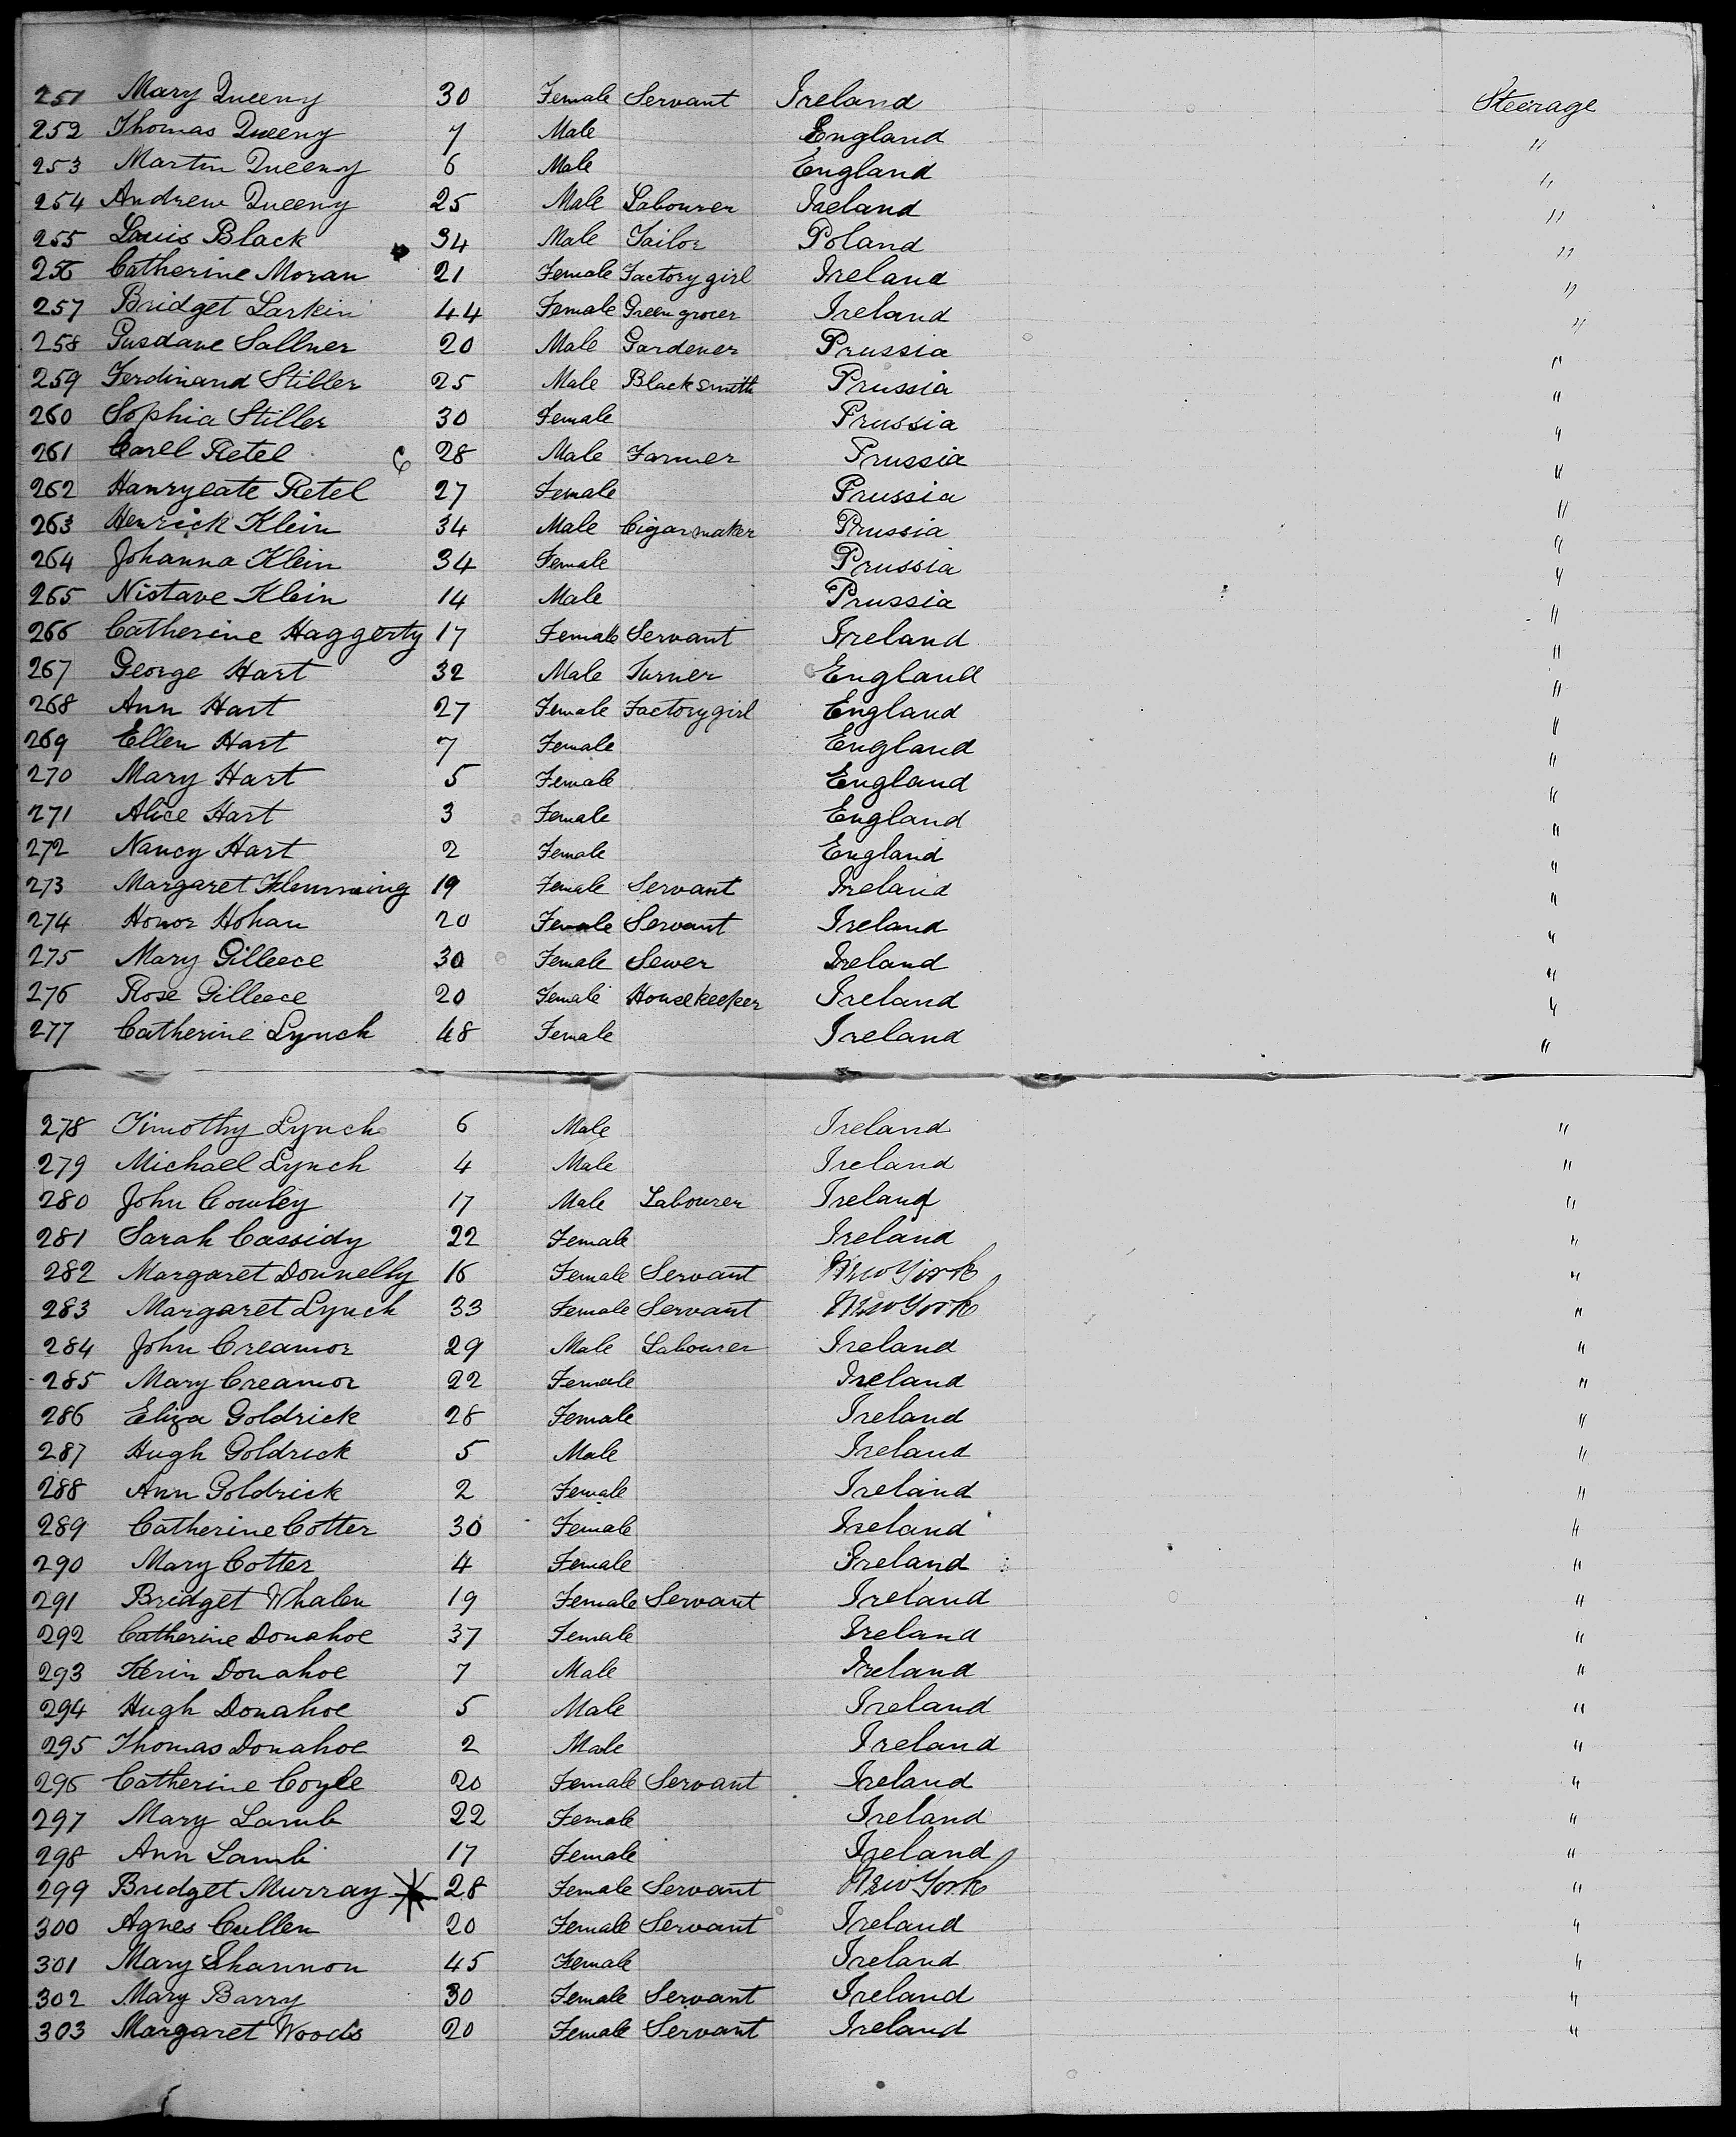 251 Mary Queeny 30 Female Servant Ireland Steerage
252 Thomas Queeny 7 Male England "
253 Martin Queeny 6 Male England "
254 Andrew Queeny 25 Male Labourer Ireland "
255 Louis Black 34 Male Tailor Poland "
256 Catherine Moran 21 Female Factory girl Ireland "
257 Bridget Larkin 44 Female Green grocer Ireland "
258 Gusdave Sallner 20 Male Gardener Prussia "
259 Ferdinand Stiller 25 Male Blacksmith Prussia "
260 Sophia Stiller 30 Female Prussia "
261 Carll Retel 28 Male Farmer Prussia "
262 Hanryeate Retel 27 Female Prussia "
263 Henrick Klein 34 Male Cigar maker Prussia "
264 Johanna Klein 34 Female Prussia "
265 Nistave Klein 14 Male Prussia "
266 Catherine Haggerty 17 Female Servant Ireland "
267 George Hart 32 Male Turner England "
268 Ann Hart 27 Female Factory girl England "
269 Ellen Hart 7 Female England "
270 Mary Hart 5 Female England "
271 Alice Hart 3 Female England "
272 Nancy Hart 2 Female England "
273 Margaret Flemming 19 Female Servant Ireland "
274 Honor Hohan 20 Female Servant Ireland "
275 Mary Gilleece 30 Female Sewer Ireland "
276 Rose Gilleece 20 Female Housekeeper Ireland "
277 Catherine Lynch 48 Female Ireland "
278 Timothy Lynch 6 Male Ireland "
279 Michael Lynch 4 Male Ireland "
280 John Cowley 17 Male Labourer Ireland "
281 Sarah Cassidy 22 Female Ireland "
282 Margaret Donnelly 16 Female Servant New York "
283 Margaret Lynch 33 Female Servant New York "
284 John Creamor 29 Male Labourer Ireland "
285 Mary Creamor 22 Female Ireland "
286 Eliza Goldrick 28 Female Ireland "
287 Hugh Goldrick 5 Male Ireland "
288 Ann Goldrick 2 Female Ireland "
289 Catherine Cotter 30 Female Ireland "
290 Mary Cotter 4 Female Ireland "
291 Bridget Whalen 19 Female Servant Ireland "
292 Catherine Donahoe 37 Female Ireland "
293 Kerin Donahoe 7 Male Ireland "
294 Hugh Donahoe 5 Male Ireland "
295 Thomas Donahoe 2 Male Ireland "
296 Catherine Coyle 20 Female Servant Ireland "
297 Mary Lamb 22 Female Ireland "
298 Ann Lamb 17 Female Ireland "
299 Bridget Murray 28 Female Servant New York "
300 Agnes Cullen 20 Female Servant Ireland "
301 Mary Shannon 45 Female Ireland "
302 Mary Barry 30 Female Servant Ireland "
303 Margaret Woods 20 Female Servant Ireland "